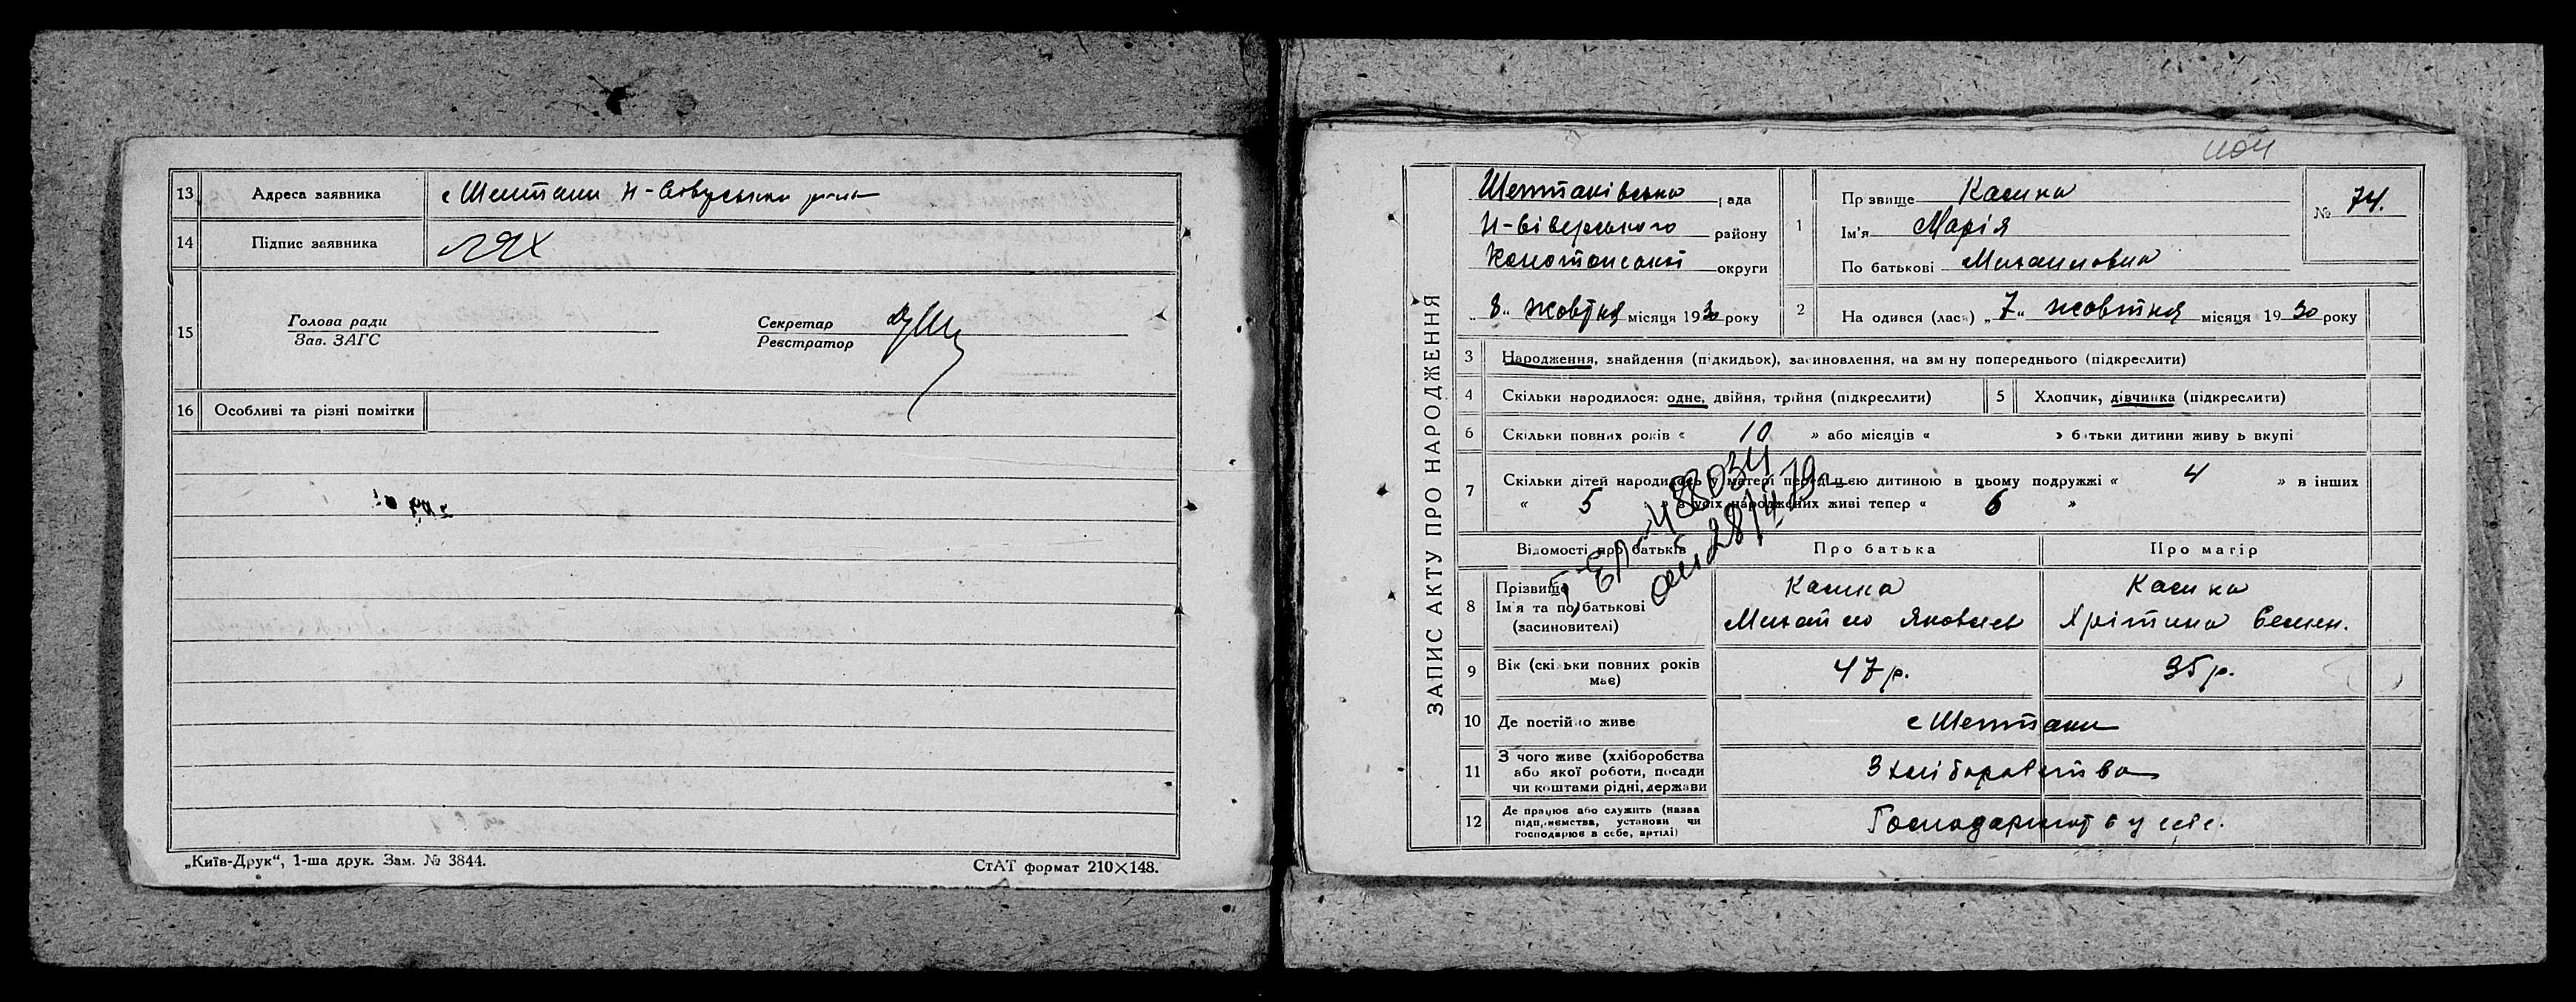 13 Адреса заявника с Шептаки Н-Сіверський район
14 Підпис заявника ЛЯХ
15 Голова ради
Зав. ЗАГС
Секретар
Реєстратор
16 Особливі та різні помітки
„Київ-Друк“, 1-ша друк. Зам. № 3844.
СтАТ формат 210×148.
ЗАПИС АКТУ ПРО НАРОДЖЕННЯ
Шептаківська рада
Н-Сіверського району
Конотопської округи
„8“ жовтня місяця 1930 року
1 Прізвище Касика
Ім'я Марія
По батькові Михайловна
№ 74.
2 Народився (лась) „7“ жовтня місяця 1930 року
3 Народження, знайдення (підкидьок), засиновлення, на зміну попереднього (підкреслити)
4 Скільки народилося: одне, двійня, трійня (підкреслити)
5 Хлопчик, дівчинка (підкреслити)
6 Скільки повних років « 10 » або місяців « » батьки дитини живуть вкупі
7 Скільки дітей народилось у матері перед цією дитиною в цьому подружжі « 4 » в інших
« 5 » з усіх народжених живі тепер « 6 »
488034
от 28/4 79
Відомості про батьків
Про батька
Про матір
8 Прізвище
Ім'я та по батькові
(засиновителі)
Касика
Михайло Яковлев
Касика
Хрістина Семен.
9 Вік (скільки повних років має)
47 р.
35 р.
10 Де постійно живе
с Шептаки
11 З чого живе (хліборобства
або якої роботи, посади
чи коштами рідні, держави
З хліборобства
12 Де працює або служить (назва
підприємства, установи чи
господарює в себе, артілі)
Господарюють у себе.